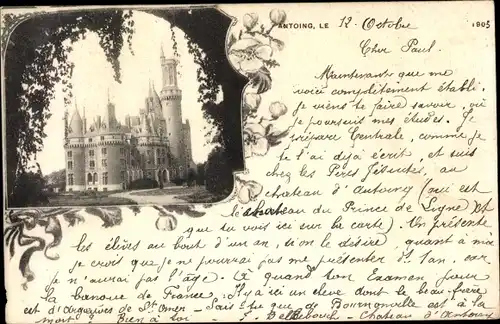 ANTOING, LE 12 Octobre 1905
Cher Paul.
Maintenant que me
voici complètement établi.
je viens te faire savoir, où
je poursuis mes études. Je
prépare Centrale, comme je
te l'ai déjà écrit, et suis
chez les Pères Jésuites, au
château d'Antoing (qui est
le château du Prince de Ligne) et
que tu vois ici sur la carte). On présente
les élèves au bout d'un an, si on le désire, quant à moi
je crois que je ne pourrai pas me présenter dans 1 an, car
je n'aurai pas l'âge. Quand ton Examen pour
la banque de France. Il y a ici un élève dont le beau-frère
est à St Omer - Sais tu que de Bournonville est à la
mort? Bien à toi
Château d'Antoing